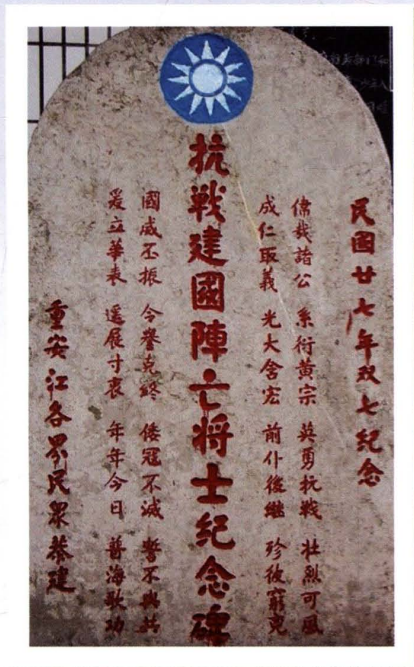 民國廿七年双七紀念
偉哉諸公 系衍黃宗 英勇抗戦 壮烈可風
成仁取義 光大含宏 前仆後継 殄彼窮兇
抗戦建國陣亡将士紀念碑
國威丕振 令譽克終 倭寇不滅 誓不與共
爰立華表 遥展寸衷 年年今日 普海歌功
重安江各界民眾恭建